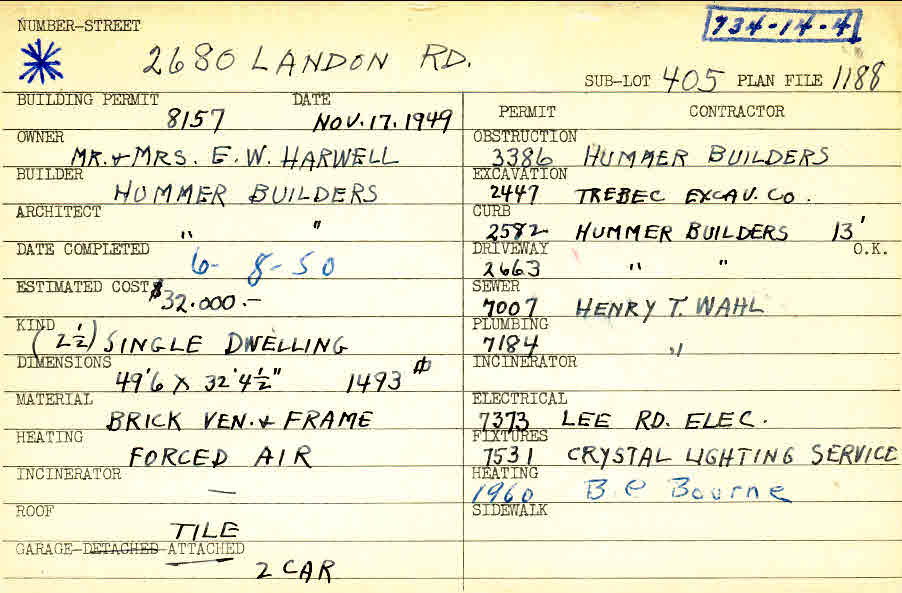 NUMBER-STREET
734-14-4
2680 LANDON RD.
SUB-LOT 405 PLAN FILE 1188
BUILDING PERMIT DATE
8157 NOV. 17. 1949
OWNER
MR. + MRS. E. W. HARWELL
BUILDER
HUMMER BUILDERS
ARCHITECT
" "
DATE COMPLETED
6-8-50
ESTIMATED COST $32.000.-
KIND
(2½) SINGLE DWELLING
DIMENSIONS
49'6 X 32'4½" 1493 #
MATERIAL
BRICK VEN. + FRAME
HEATING
FORCED AIR
INCINERATOR
—
ROOF
TILE
GARAGE-DETACHED-ATTACHED
2 CAR
PERMIT CONTRACTOR
OBSTRUCTION
3386 HUMMER BUILDERS
EXCAVATION
2447 TREBEC EXCAV. CO.
CURB
2582 HUMMER BUILDERS 13'
DRIVEWAY O.K.
2663 " "
SEWER
7007 HENRY T. WAHL
PLUMBING
7184 "
INCINERATOR
ELECTRICAL
7373 LEE RD. ELEC.
FIXTURES
7531 CRYSTAL LIGHTING SERVICE
HEATING
1960 B.C Bourne
SIDEWALK